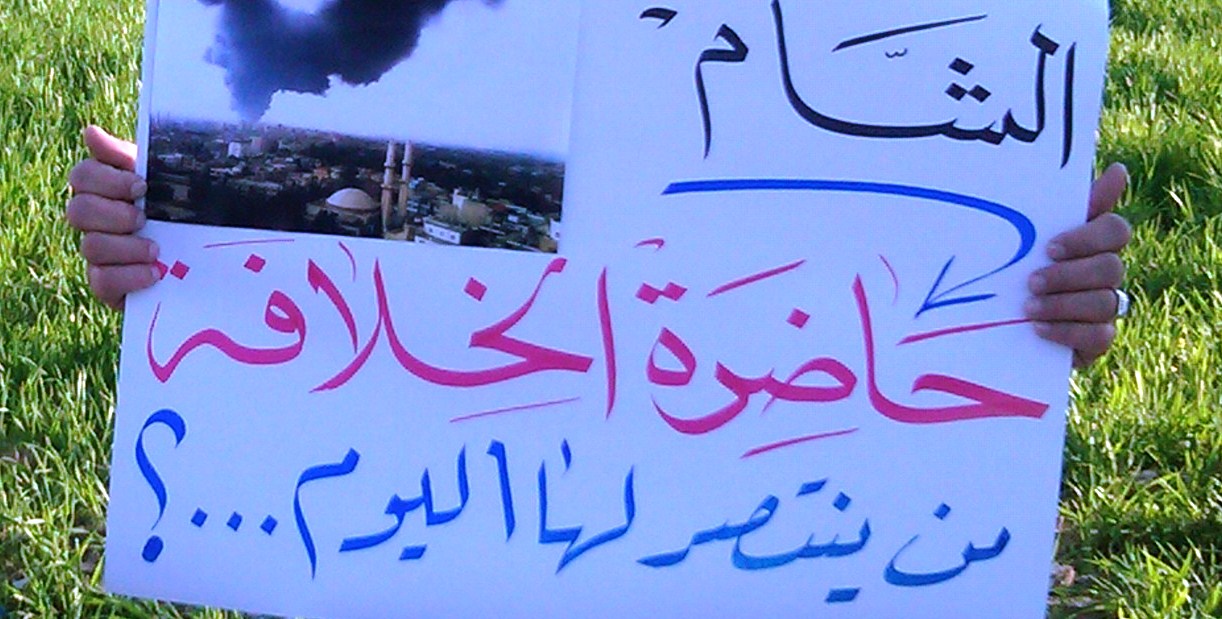 الشام
حَاضِرَة الخِلافَة
من ينتصر لها اليوم...؟